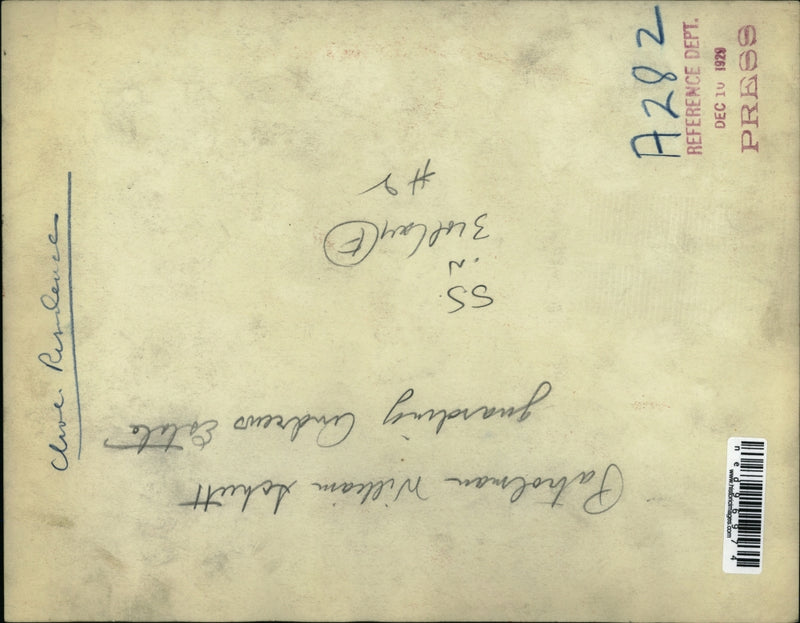 A282
REFERENCE DEPT.
DEC 10 1929
PRESS
Cleve. Residences
Patrolman William Schutt
guarding Andrews Estate
SS
in
3 col lay E
#2
www.historicimages.com
ned96974